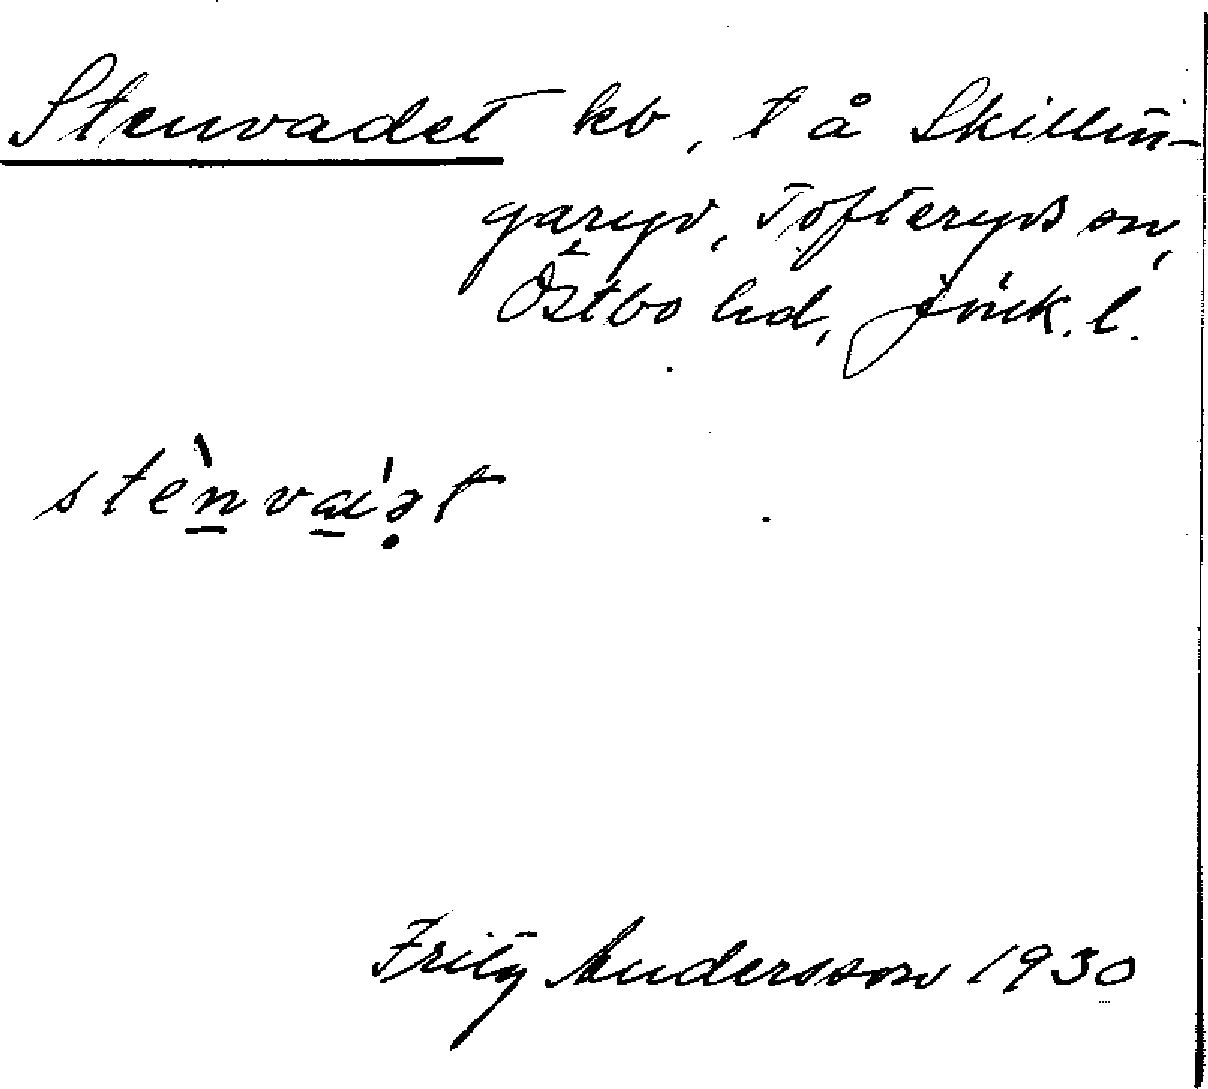 Stenvadet kb, t å Skillin-
garyd, Tofteryds sn,
Östbo hd, Jönk. l.
stènvaʹət
Fritz Andersson 1930